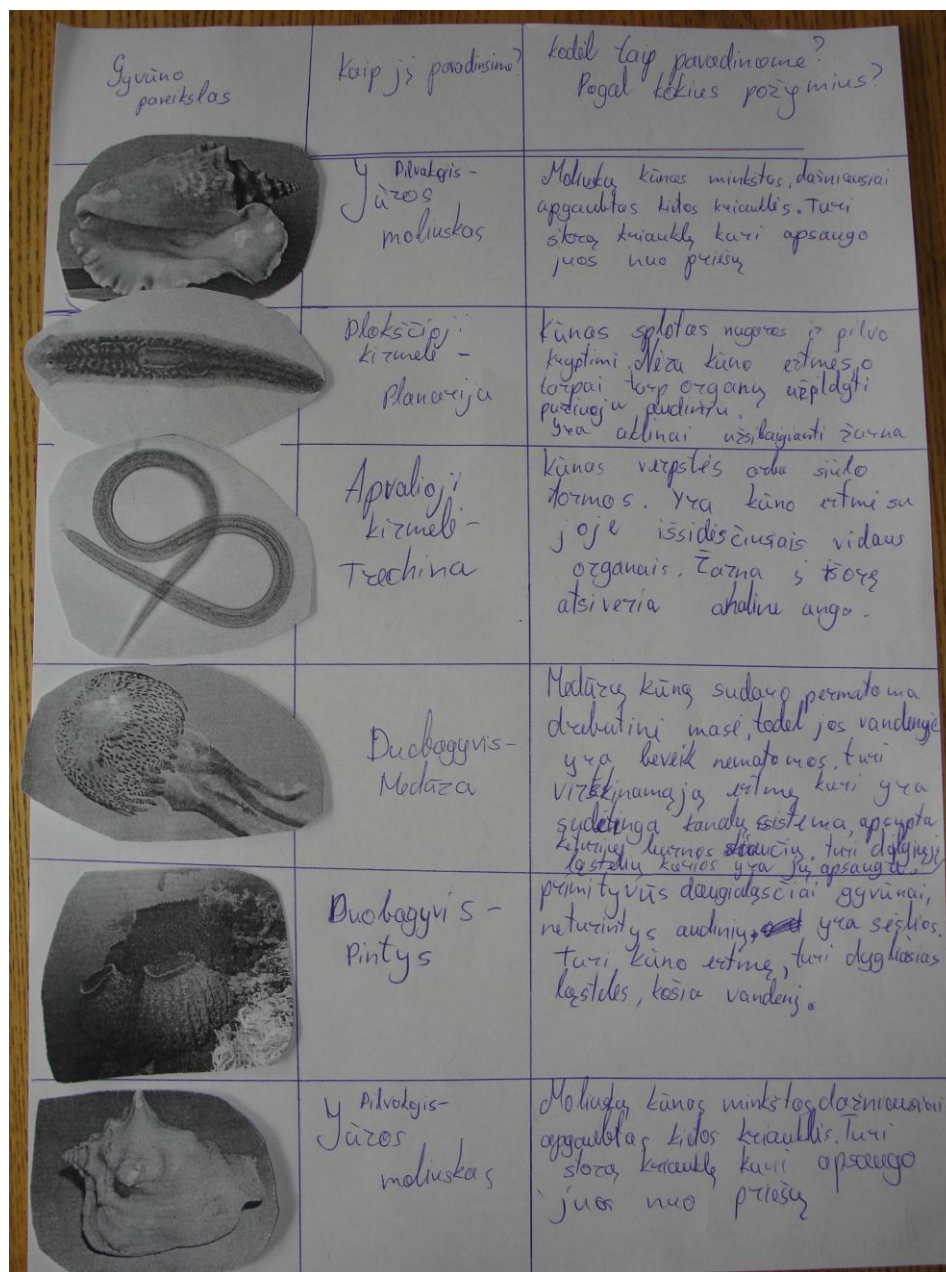 Gyvūno
paveikslas
Kaip jį pavadinsime?
Kodėl taip pavadinome?
Pagal kokius požymius?
Pilvakojis-
Jūros
moliuskas
Moliuskų kūnas minkštas, dažniausiai
apgaubtas kietos kriauklės. Turi
storą kriauklę kuri apsaugo
juos nuo priešų
Plokščioji
kirmėlė -
Planarija
Kūnas splotas nugaros ir pilvo
kryptimi. Nėra kūno ertmės, o
tarpai tarp organų užpildyti
puriuoju audiniu.
Yra aklinai užsibaigianti žarna
Apvalioji
kirmėlė-
Trechina
Kūnas verpstės arba siūlo
formos. Yra kūno ertmė su
joje išsidėsčiusiais vidaus
organais. Žarna į išorę
atsiveria analine anga.
Duobagyvis-
Medūza
Medūzų kūną sudaro permatoma
drebutinė masė, todėl jos vandenyje
yra beveik nematomos, turi
virškinamąją ertmę kuri yra
sudėtinga kanalų sistema, apsupta
keturių burnos skiaučių. turi dilgiųjų
ląstelių kurios yra jų apsauga.
Duobagyvis -
Pintys
primityvūs daugialąsčiai gyvūnai,
neturintys audinių, yra sėslios.
Turi kūno ertmę, turi dygliąsias
ląsteles, košia vandenį.
Pilvakojis-
Jūros
moliuskas
Moliuskų kūnas minkštas, dažniausiai
apgaubtas kietos kriauklės. Turi
storą kriauklę kuri apsaugo
juos nuo priešų